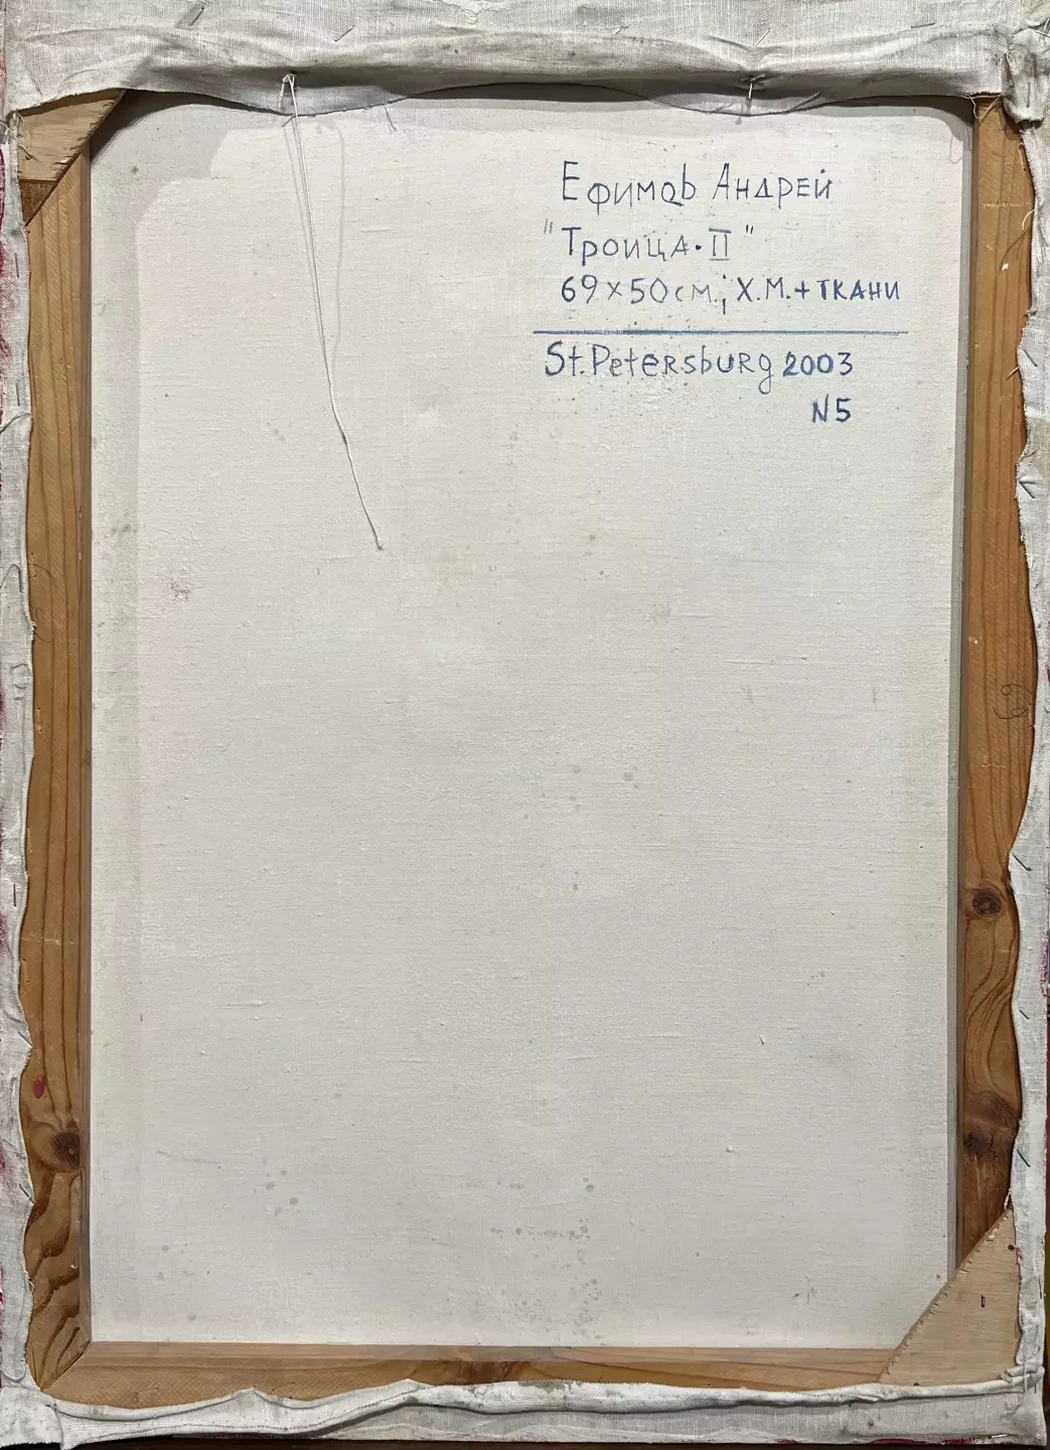 Ефимов Андрей
"Троица·II"
69x50см.; Х.М.+ТКАНИ
St. Petersburg 2003
N5
69